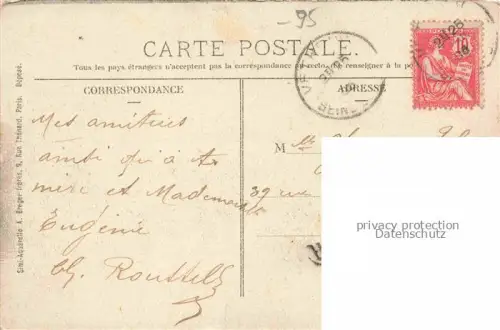 -95
CARTE POSTALE.
Tous les pays étrangers n'acceptent pas la correspondance au recto, se renseigner à la po
CORRESPONDANCE
ADRESSE
Mes amitiés
ainsi qu'à ta
mère et Mademoiselle
Eugénie
Ch. Roussel
M
39 rue
10
privacy protection
Datenschutz
Simi-Aquarelle A. Breger frères, 9, Rue Thénard, Paris. Déposé.